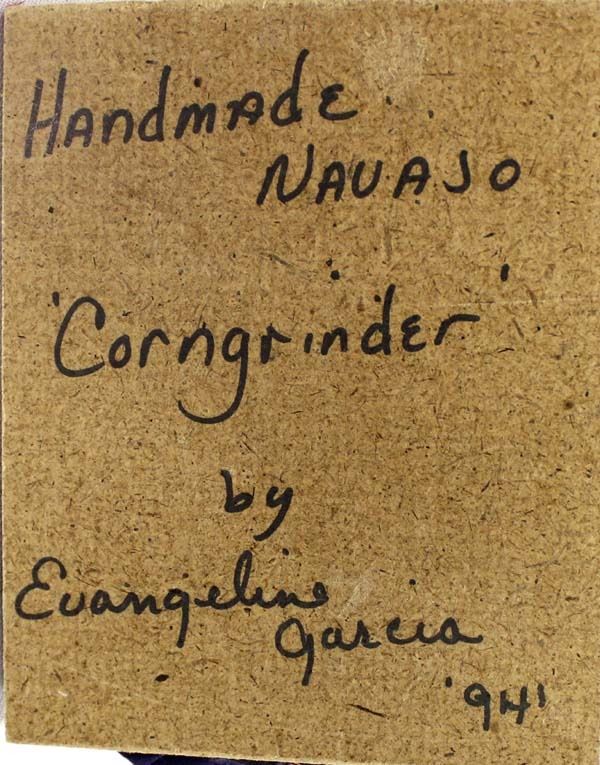 Handmade
NAVAJO
'Corngrinder'
by
Evangeline
Garcia
'94'